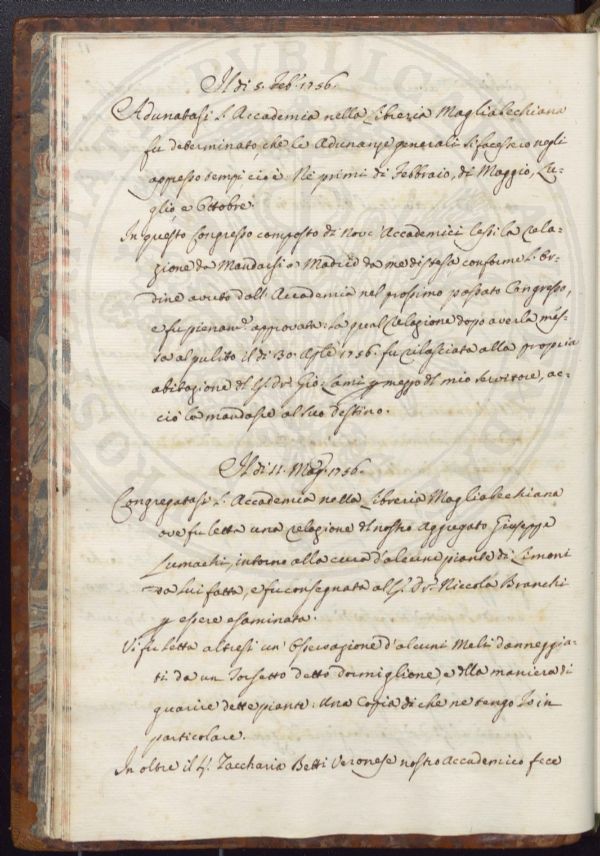 Il di 5. Feb.º 1756.
Adunatasi l'Accademia nella Libreria Magliabechiana
fu determinato, che le Adunanze generali si facessero negli
appresso tempi cioè: Ne primi di Febbraio, di Maggio, Lu-
glio, e Ottobre.
In questo Congresso composto di Nove Accademici lessi la Rela-
zione da Mandarsi a Madrid da me distesa conforme l'Or-
dine avuto dall'Accademia nel prossimo passato Congresso,
e fu pienam.e approvata: La qual Relazione dopo averla mes-
sa al pulito il di 30. Aple 1756. fu rilasciata alla propria
abitazione del Sr. Dr. Gio: Lami p mezzo del mio servitore, ac-
ciò la mandasse al suo destino.
Il di 11. Magº 1756.
Congregatasi l'Accademia nella Libreria Magliabechiana
ove fu letta una relazione del nostro Aggregato Giuseppe
Lumachi, intorno alla cura d'alcune piante di Limoni
da lui fatta, e fu consegnata al Sr. Dr. Niccola Branchi
p essere esaminata.
Vi fu letta altresì un'Osservazione d'alcuni Meli danneggia-
ti da un Insetto detto dormiglione, e della maniera di
guarire dette piante: Una Copia di che ne tengo Io in
particolare.
In oltre il Sr. Zaccharia Betti Veronese nostro Accademico fece
PUBLICA